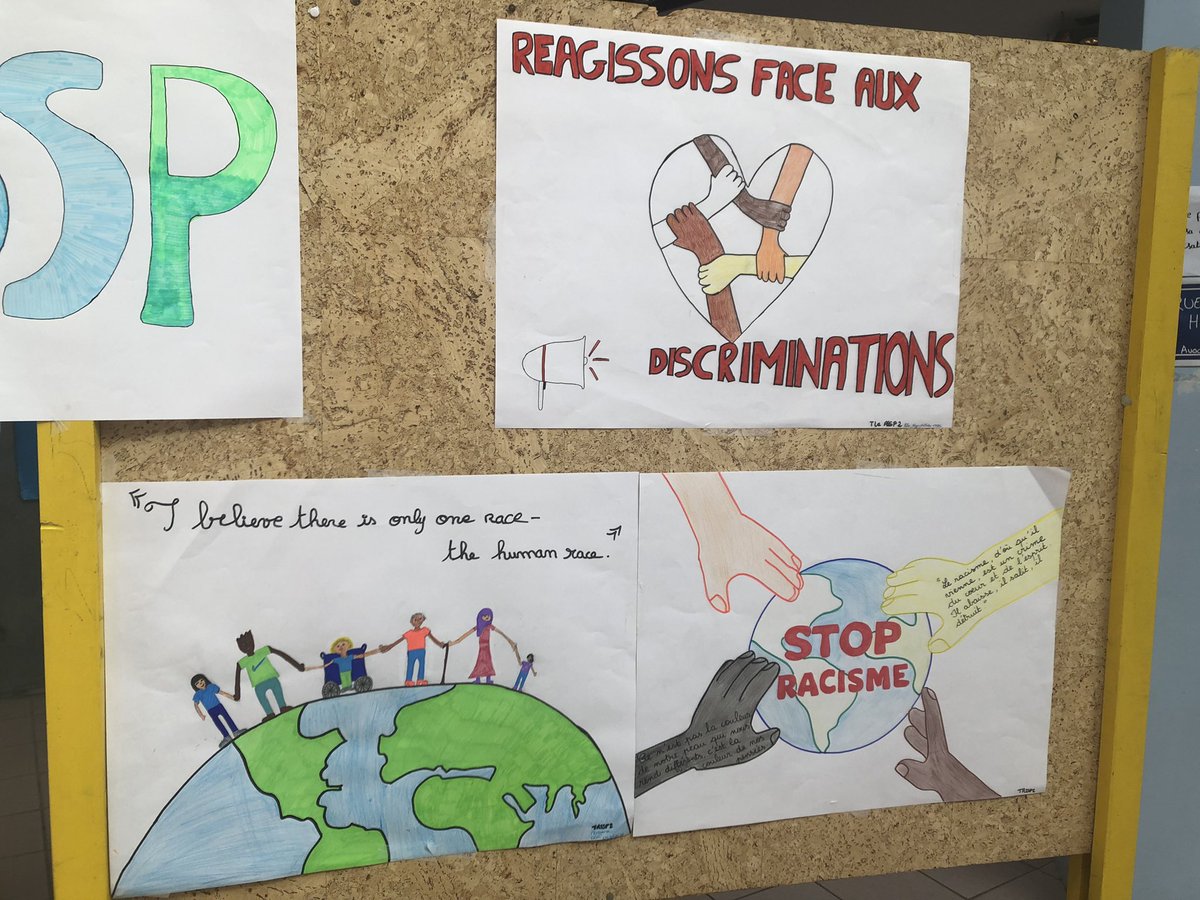 SP
REAGISSONS FACE AUX
DISCRIMINATIONS
TLe ASSP2
"I believe there is only one race -
the human race."
TASSP2
"Le racisme, d'où qu'il
vienne, est un crime
du cœur et de l'esprit
Il abaisse, il salit, il
détruit"
STOP
RACISME
Ce n'est pas la couleur
de notre peau qui nous
rend différents, c'est la
couleur de nos
pensées